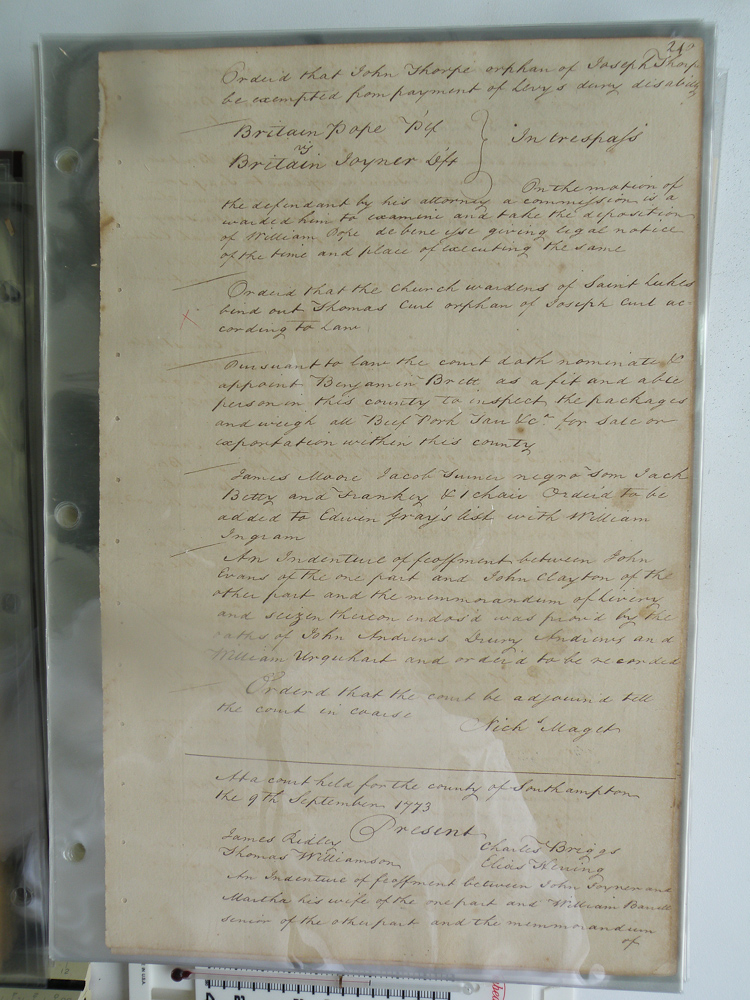 Orderd that John Thorpe orphan of Joseph Thorp
be exempted from payment of Levy's dury disabidy
Britain Pope Plf
vs
Britain Joyner Dft
In trespass
On the motion of
the defendant by his attorney a commission is a
warded him to examine and take the deposition
of William Pope de bene esse giving legal notice
of the time and place of executing the same
Orderd that the Church wardens of Saint Lukes
bind out Thomas Curl orphan of Joseph Curl ac-
cording to Law
Pursuant to law the court doth nominate &
appoint Benjamin Brett as a fit and able
person in this county to inspect the packages
and weigh all Beef Pork Tar &c. for Sale or
exportation within this county
James Moore Jacob Turner negro Tom Jack
Betty and Frankey & 1 chair Orderd to be
added to Edwin Gray's list with William
Ingram
An Indenture of feoffment between John
Evans of the one part and John Clayton of the
other part and the memmorandum of livery
and seizen thereon endos'd was prov'd by the
oaths of John Andrews Drury Andrews and
William Urquhart and order'd to be recorded
Orderd that the court be adjourn'd till
the court in coarse
Nichs. Maget
At a court held for the county of Southampton
the 9th September 1773
Present
James Ridley
Charles Briggs
Thomas Williamson
Elias
An Indenture of feoffment between John Joyner and
Martha his wife of the one part and William
senior of the other part and the memmorandum
of